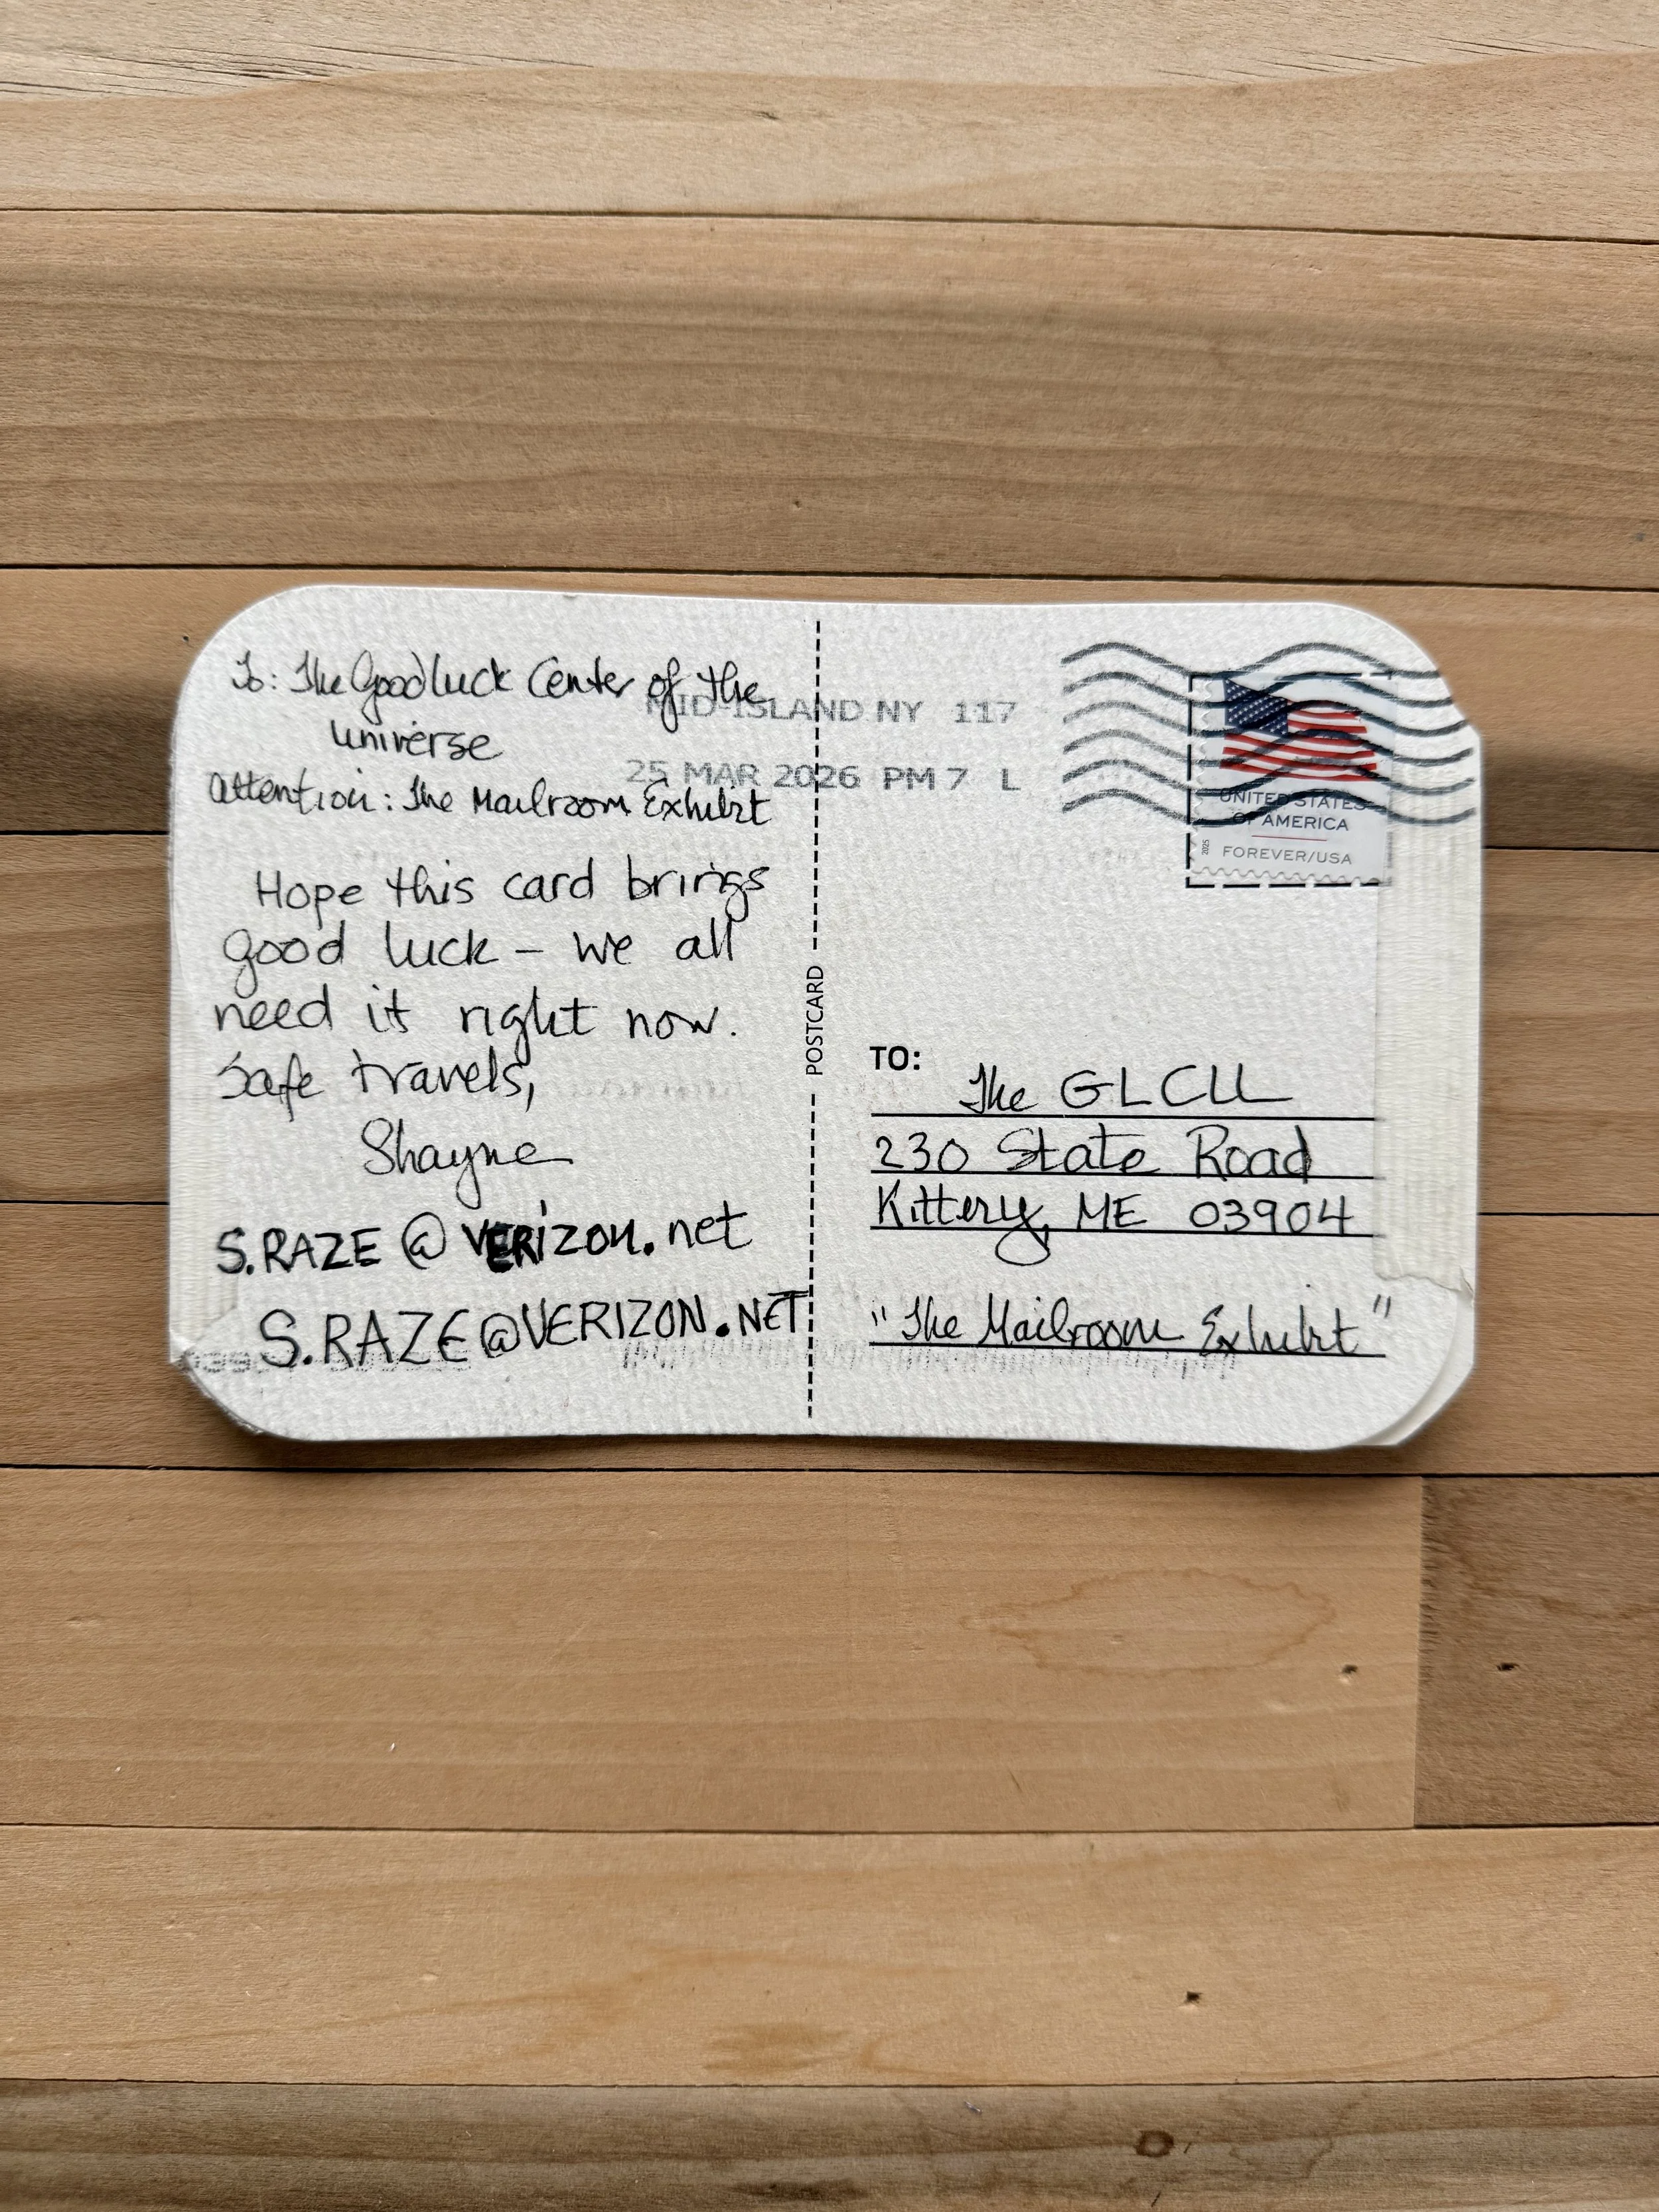 To: The Good luck Center of the
Universe
Attention: The Mailroom Exhibit
Hope this card brings
good luck – we all
need it right now.
Safe travels,
Shayne
S.RAZE @ VERizon.net
S.RAZE@VERIZON.NET
POSTCARD
MID-ISLAND NY 117
25 MAR 2026 PM 7 L
UNITED STATES
OF AMERICA
2025
FOREVER/USA
TO:
The GLCU
230 State Road
Kittery, ME 03904
"The Mailroom Exhibit"